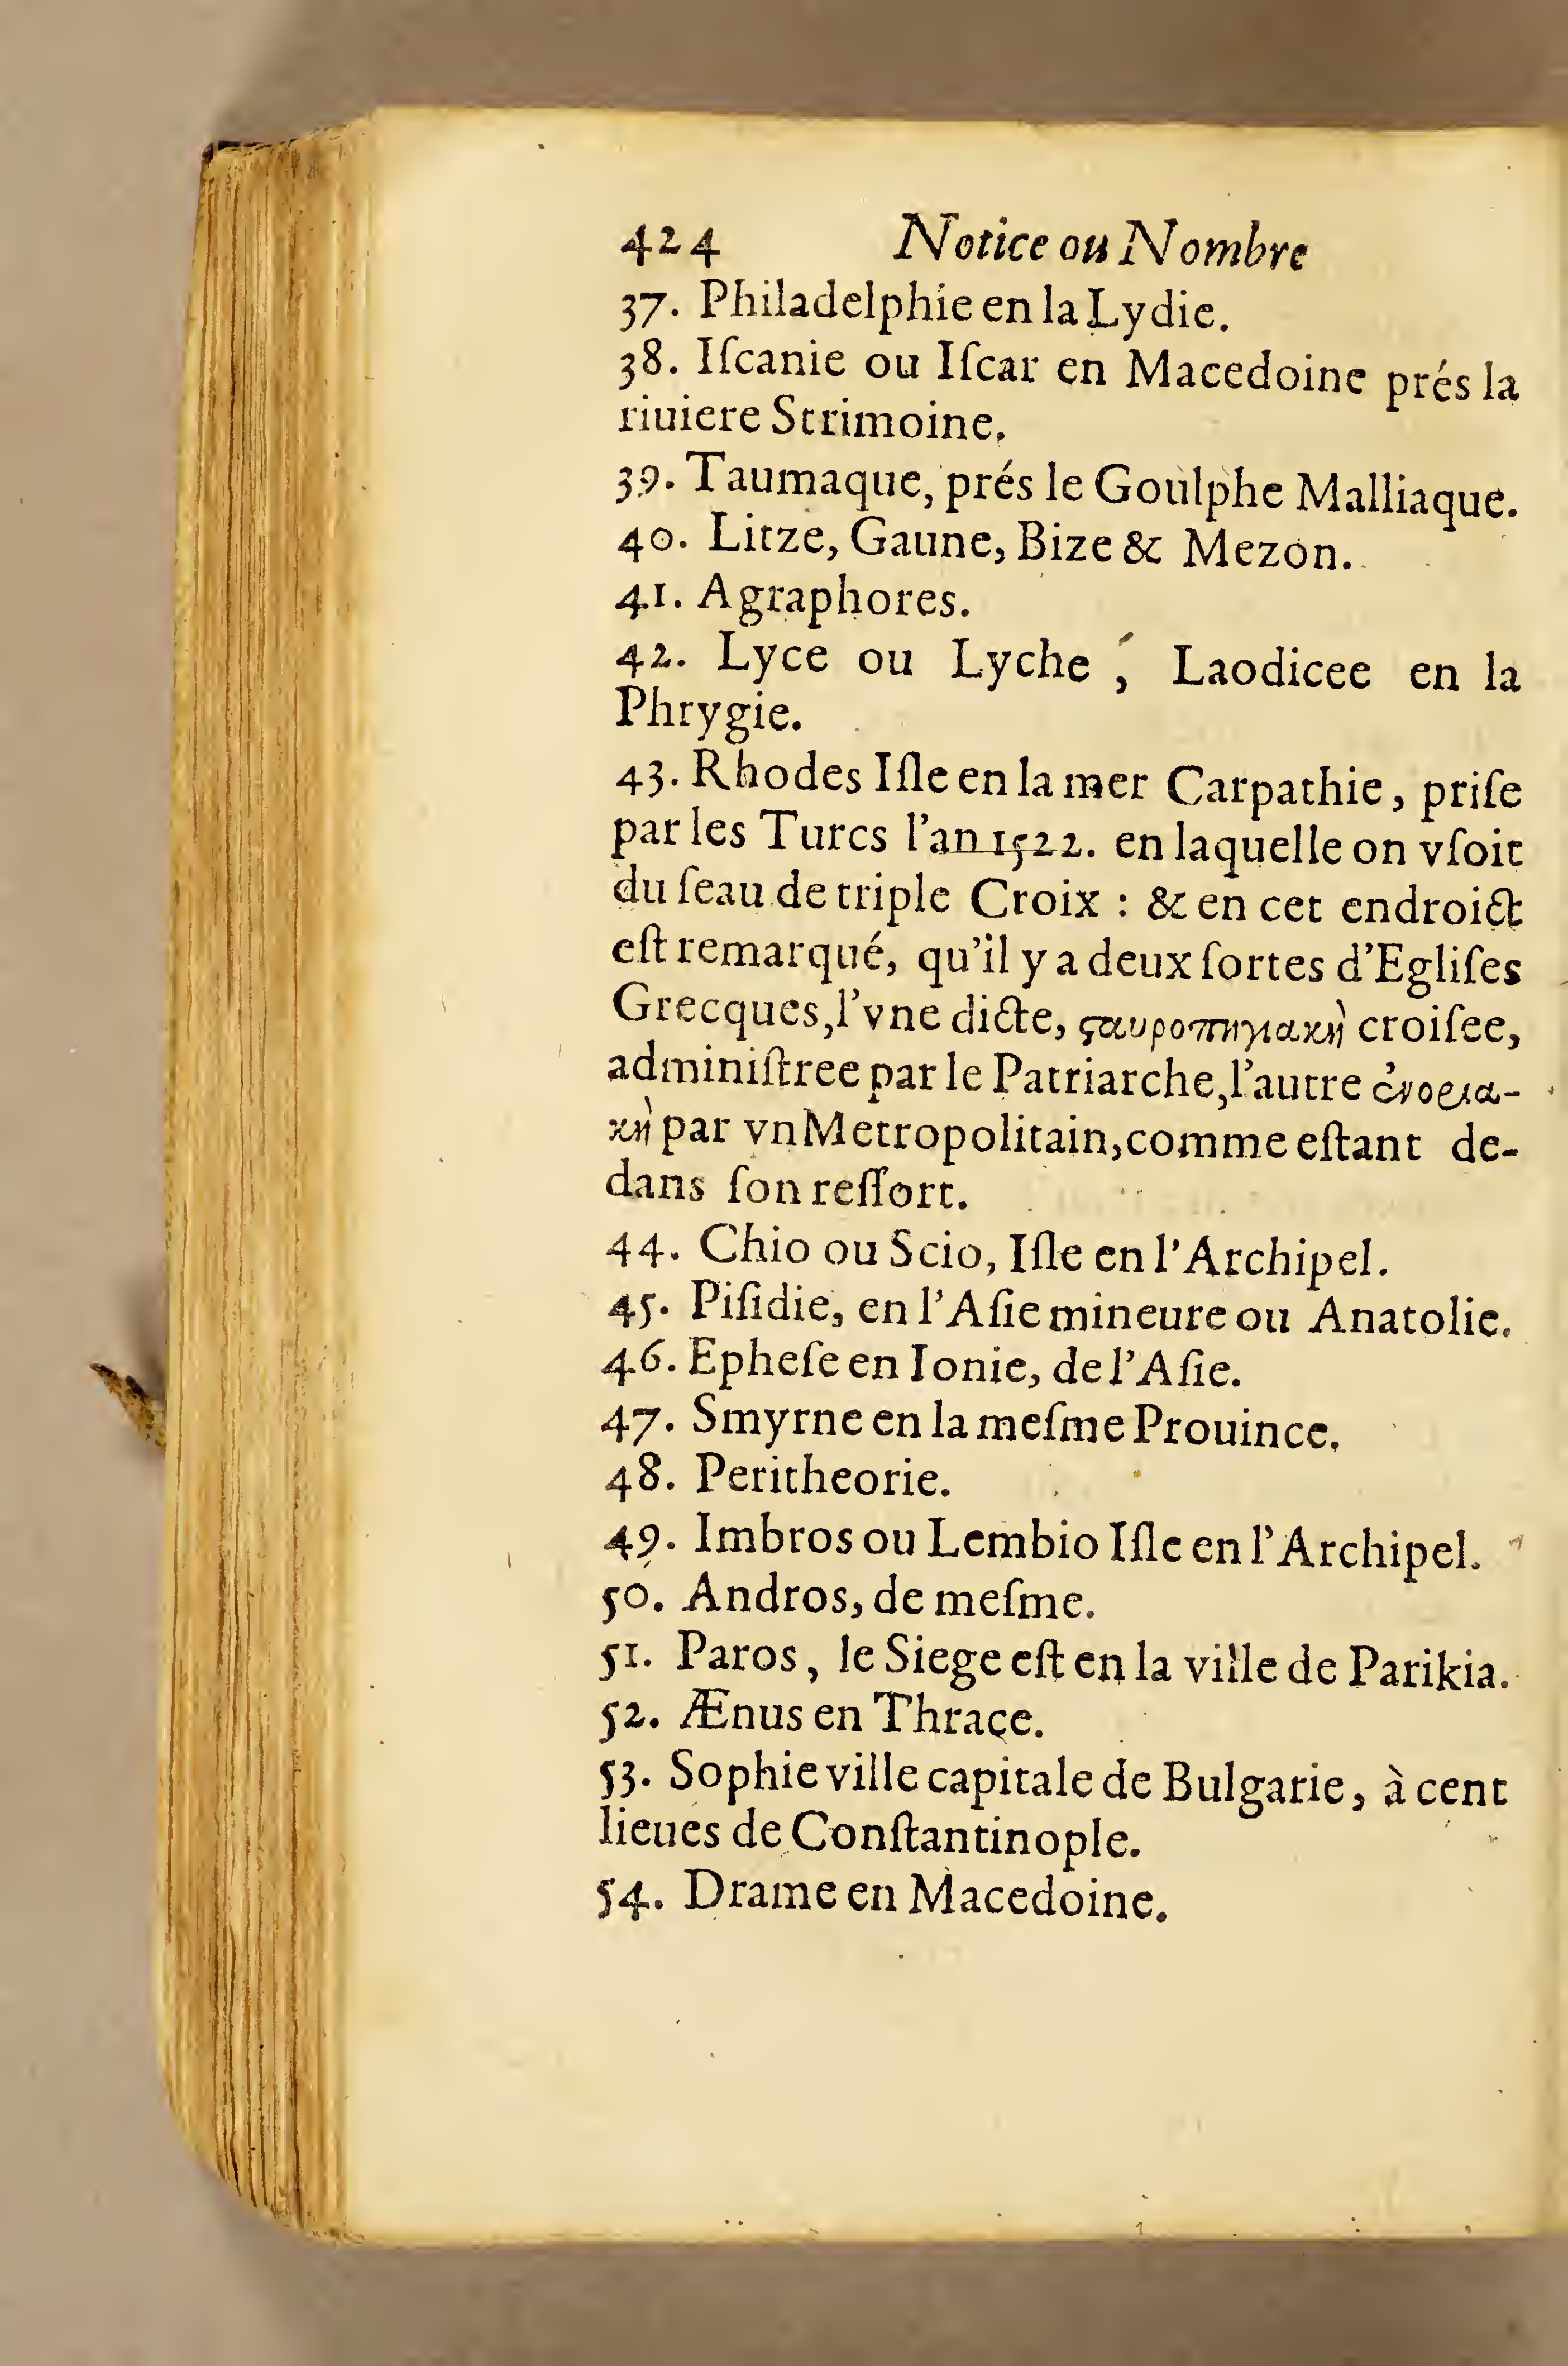 424 Notice ou Nombre
37. Philadelphie en la Lydie.
38. Iſcanie ou Iſcar en Macedoine prés la
riuiere Strimoine.
39. Taumaque, prés le Goulphe Malliaque.
40. Litze, Gaune, Bize & Mezon.
41. Agraphores.
42. Lyce ou Lyche, Laodicee en la
Phrygie.
43. Rhodes Iſle en la mer Carpathie, priſe
par les Turcs l'an 1522. en laquelle on vſoit
du ſeau de triple Croix : & en cet endroict
eſt remarqué, qu'il y a deux ſortes d'Egliſes
Grecques, l'vne dicte, ϛαυροπηγιακὴ croiſee,
adminiſtree par le Patriarche, l'autre ἐνορια-
κὴ par vn Metropolitain, comme eſtant de-
dans ſon reſſort.
44. Chio ou Scio, Iſle en l'Archipel.
45. Piſidie, en l'Aſie mineure ou Anatolie.
46. Epheſe en Ionie, de l'Aſie.
47. Smyrne en la meſme Prouince.
48. Peritheorie.
49. Imbros ou Lembio Iſle en l'Archipel.
50. Andros, de meſme.
51. Paros, le Siege eſt en la ville de Parikia.
52. Ænus en Thrace.
53. Sophie ville capitale de Bulgarie, à cent
lieues de Conſtantinople.
54. Drame en Macedoine.